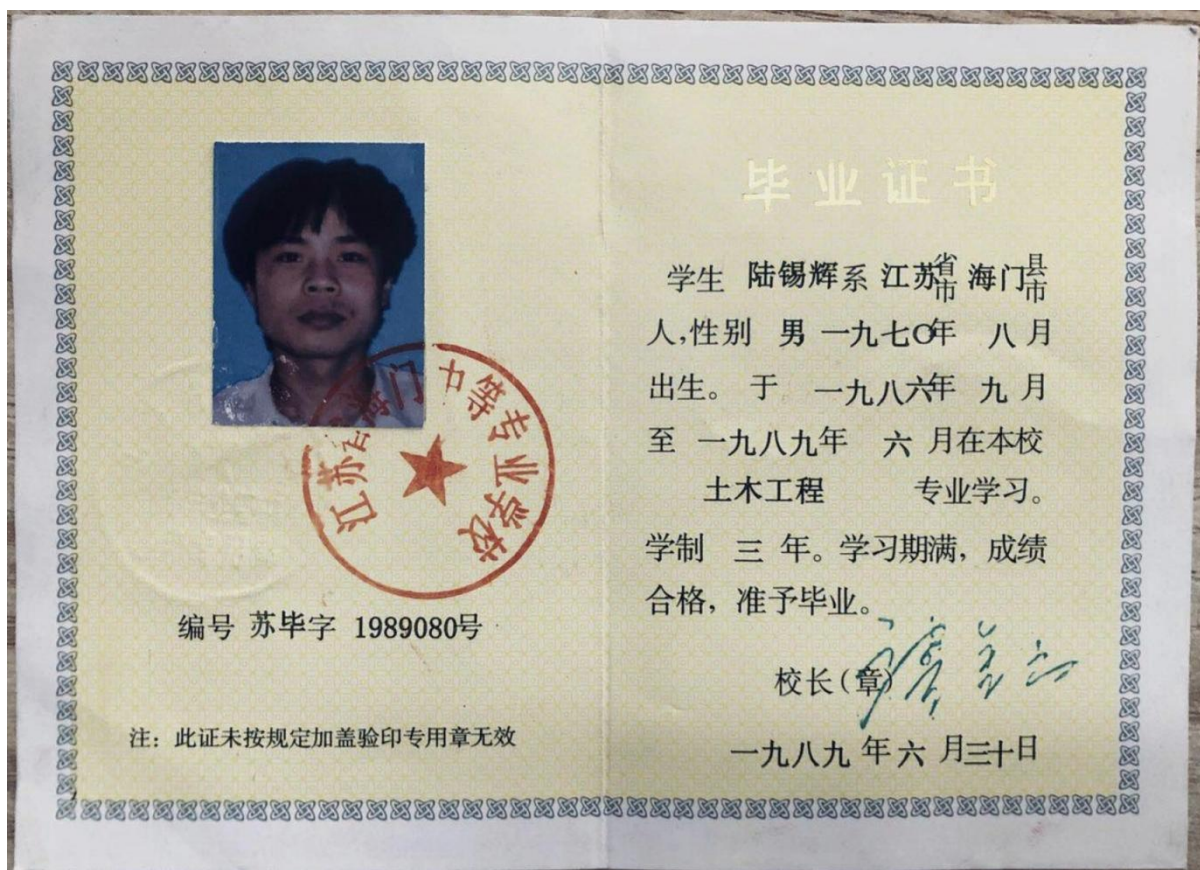 江苏省海门中等专业学校
编号 苏毕字 1989080号
注：此证未按规定加盖验印专用章无效
毕业证书
学生 陆锡辉系 江苏省市 海门县市
人,性别 男 一九七〇年 八月
出生。于 一九八六年 九月
至 一九八九年 六 月在本校
土木工程 专业学习。
学制 三 年。学习期满，成绩
合格，准予毕业。
校长（章）
一九八九 年 六 月三十日